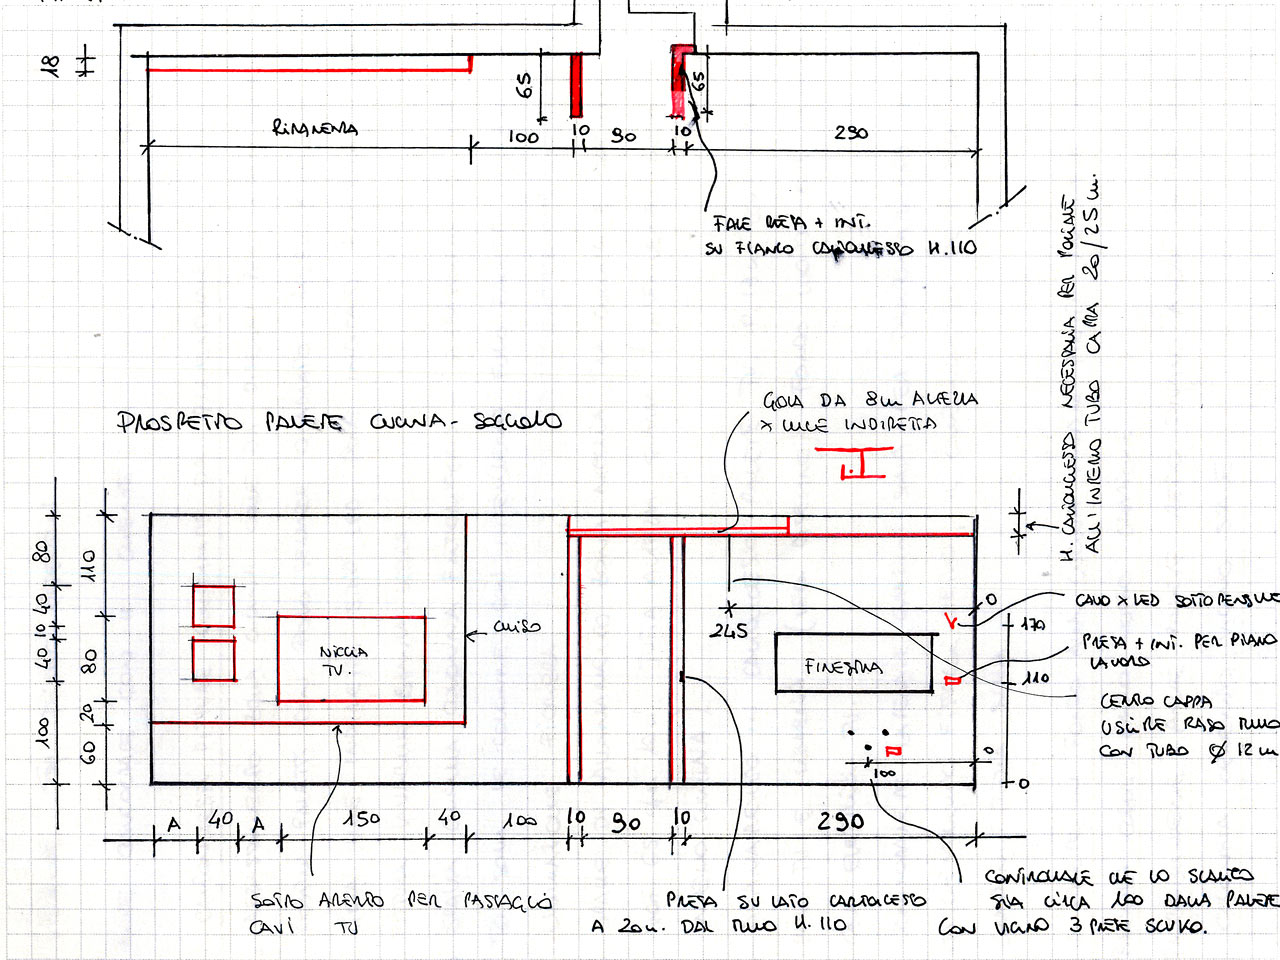 18
65
65
RIMANENZA
100
10
90
10
290
FARE PRESA + INT.
SU FIANCO CARTONGESSO H.110
H. CARTONGESSO NECESSARIA PER PORTARE
ALL'INTERNO TUBO CAPPA 20/25 cm.
PROSPETTO PARETE CUCINA-SOGGIORNO
GOLA DA 8cm APERTA
X LUCE INDIRETTA
80
40
10
40
100
110
80
20
60
NICCHIA
TV.
CHIUSO
245
0
FINESTRA
170
110
0
100
0
CAVO X LED SOTTOPENSILE
PRESA + INT. PER PIANO
LAVORO
CENTRO CAPPA
USCIRE RASO MURO
CON TUBO Ø 12 cm
A
40
A
150
40
100
10
90
10
290
SOTTO APERTO PER PASSAGGIO
CAVI TV
PRESA SU LATO CARTONGESSO
A 20cm. DAL MURO H.110
CONTROLLARE CHE LO SCARICO
SIA CIRCA 100 DALLA PARETE
CON VICINO 3 PRESE SCUKO.